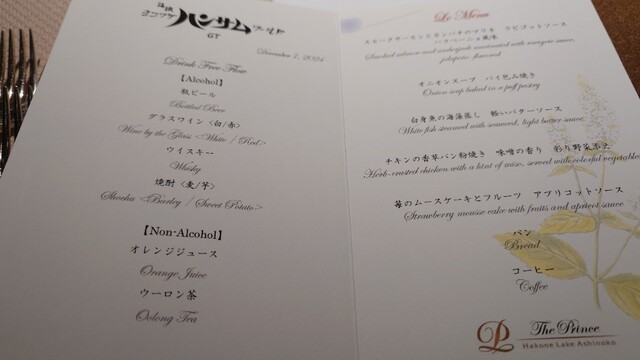 ハンサム
GT
December 7, 2024
Drink Free Flow
【Alcohol】
瓶ビール
Bottled Beer
グラスワイン <白/赤>
Wine by the Glass <White / Red>
ウイスキー
Whisky
焼酎 <麦/芋>
Shochu <Barley / Sweet Potato>
【Non-Alcohol】
オレンジジュース
Orange Juice
ウーロン茶
Oolong Tea
Le Menu
スモークサーモンとカンパチのマリネ ラビゴットソース
ハラペーニョ風味
Smoked salmon and amberjack marinated with ravigote sauce,
jalapeño flavored
オニオンスープ パイ包み焼き
Onion soup baked in a puff pastry
白身魚の海藻蒸し 軽いバターソース
White fish steamed with seaweed, light butter sauce
チキンの香草パン粉焼き 味噌の香り 彩り野菜添え
Herb-crusted chicken with a hint of miso, served with colorful vegetables
苺のムースケーキとフルーツ アプリコットソース
Strawberry mousse cake with fruits and apricot sauce
パン
Bread
コーヒー
Coffee
The Prince
Hakone Lake Ashinoko